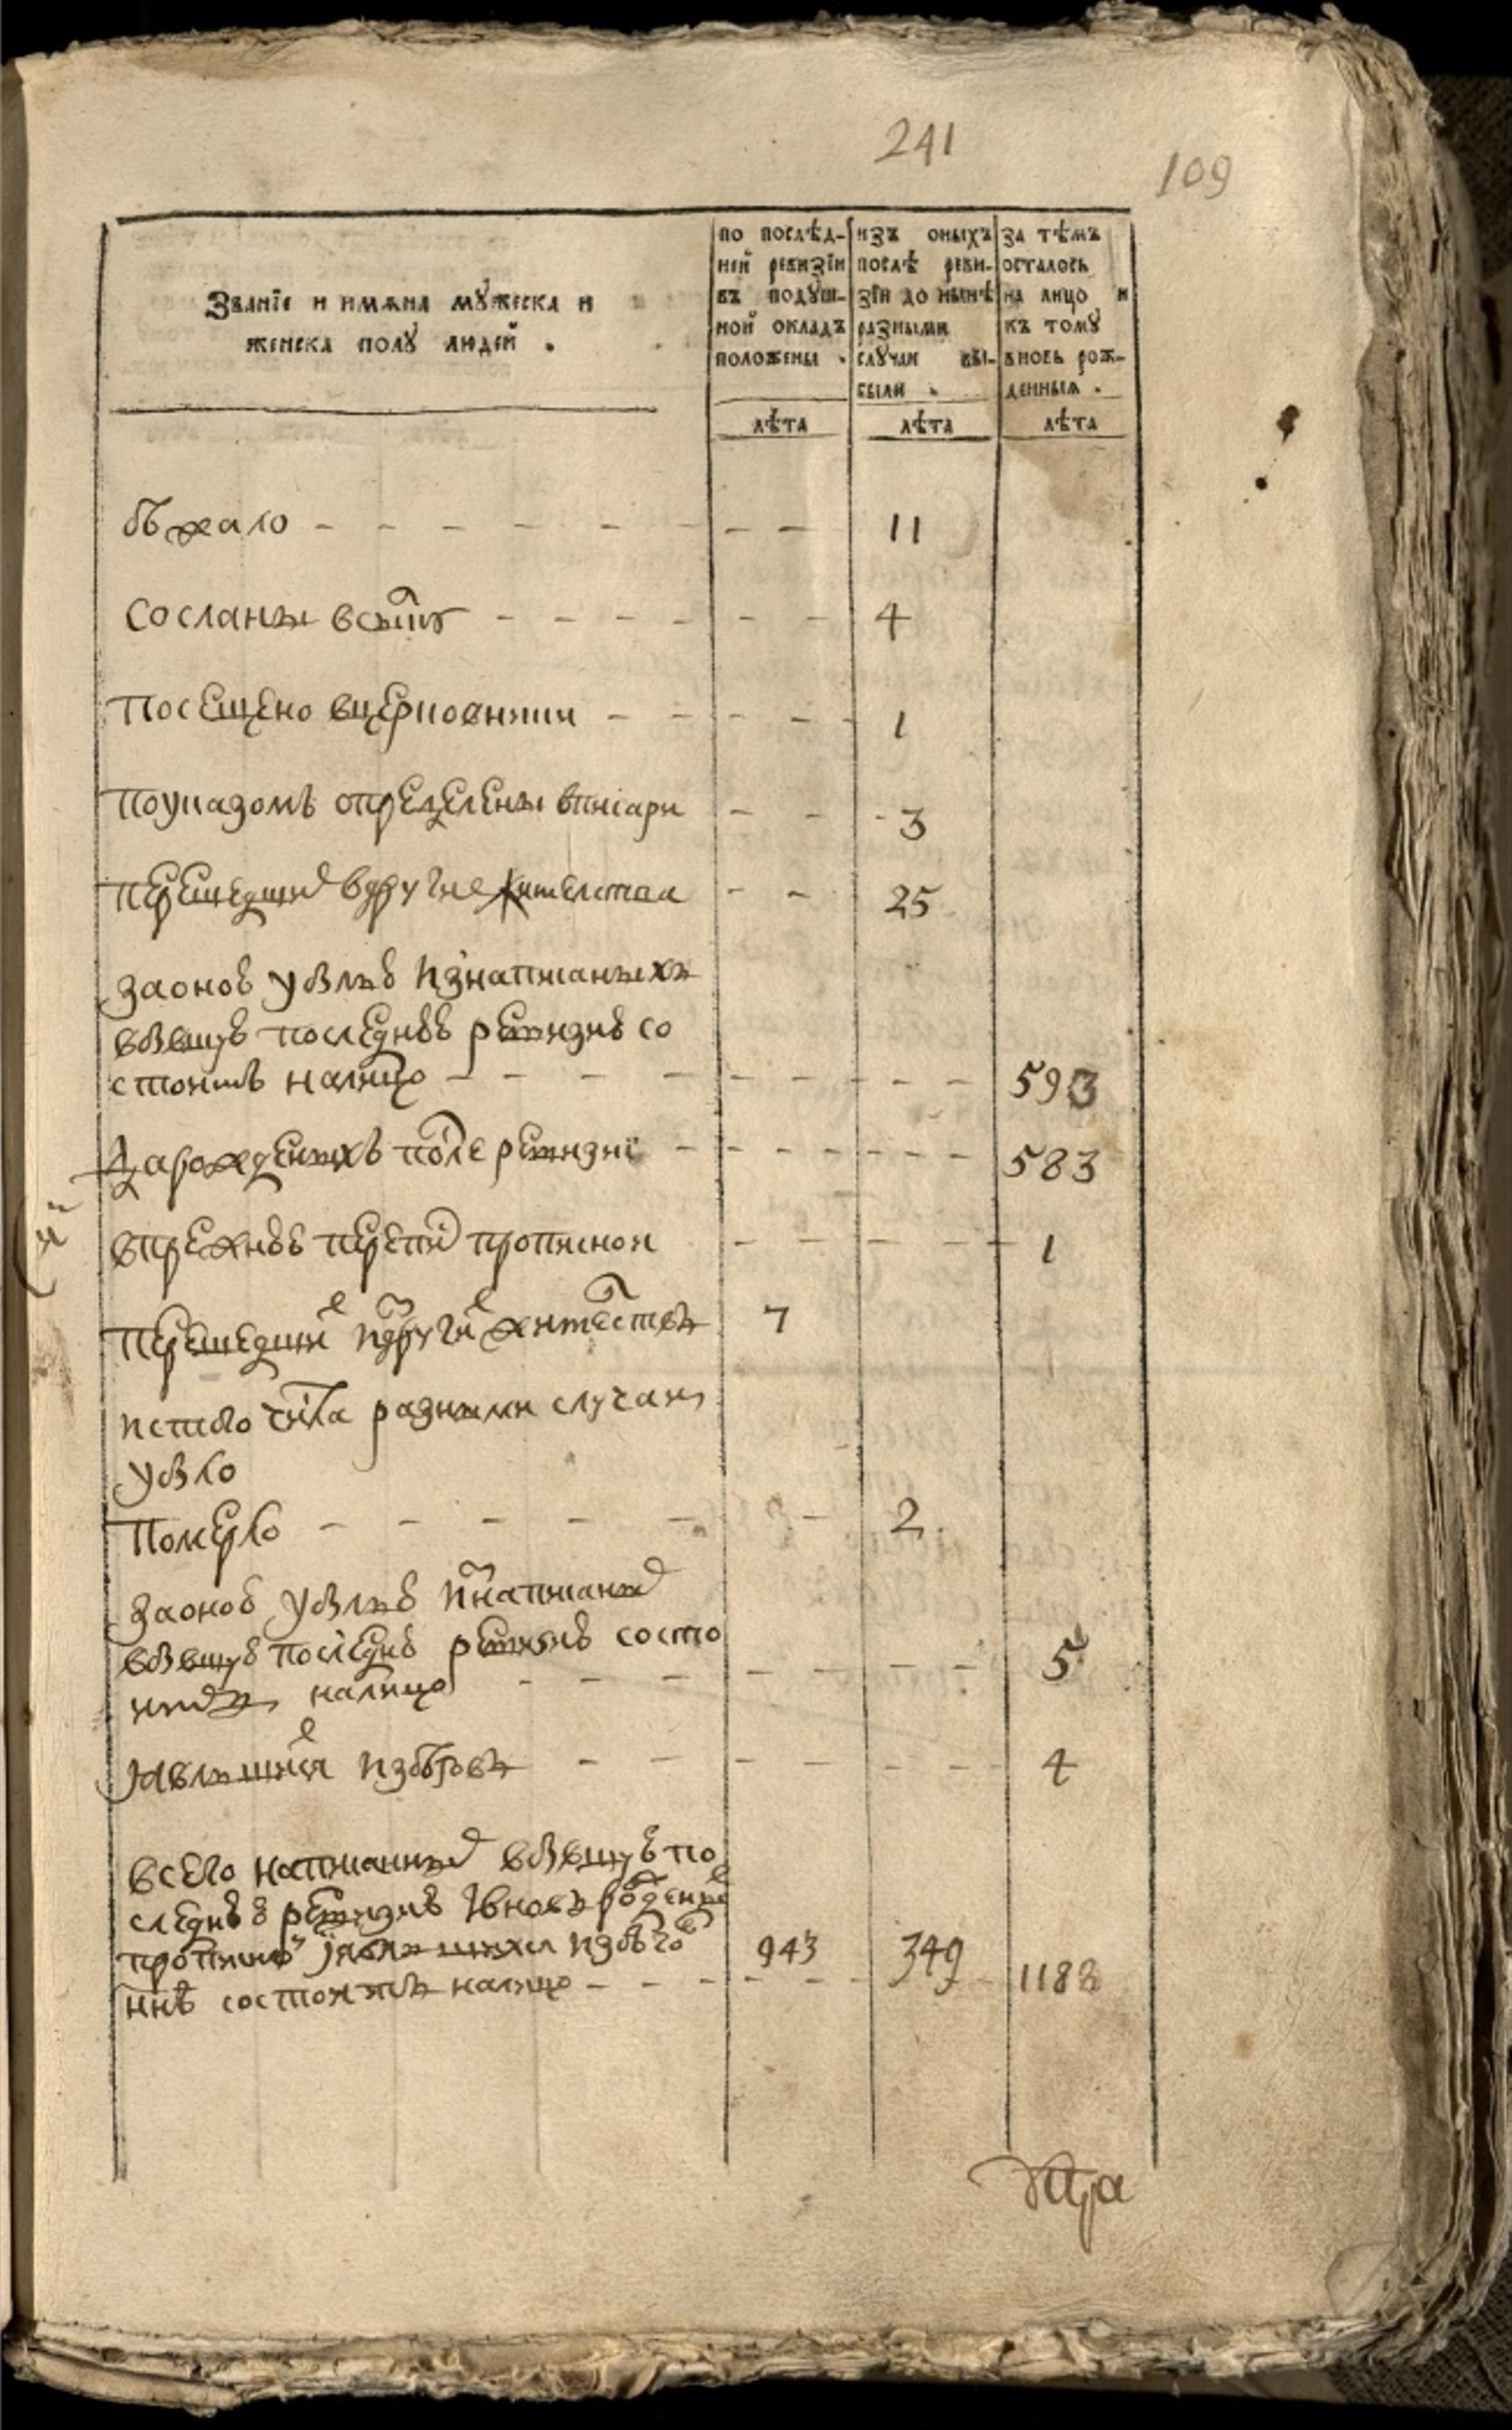 241
109
Званїе и имѧна мꙋжеска и
женска полꙋ людей .
по послѣд-
ней ревизїи
въ подꙋш-
ной окладъ
положены .
изъ оныхъ
послѣ реви-
зїи до нынѣ
разными
слꙋчаи вы-
были .
за тѣмъ
осталось
на лицо и
къ томꙋ
вновь рож-
денныѧ .
лѣта лѣта лѣта
бѣжало - - - - - - - - 11
Сосланы - - - - - - 4
Посещено - - - - 1
поуказомъ определены - - 3
перешедших вдругие жителства - - 25
заонов убылью Изнаписаныхъ
вбывшую последнею ревизию со
стоитъ налицо - - - - - - - - 593
Зарожденыхъ после ревизиї - - - - - - 583
впрежнею перепис прописнои - - - - - 1
Перешедших Издругих жителствъ 7
Истого числа разными случаи
убыло
Померло - - - - - - 2
Заоною убылью Изнаписаных
вбывшую последнюю ревизию состо
налицо - - - - - - - - 5
Явлшихся Избегов - - - - - - - 4
всего написанных вбывшую по
следнею ревизию Ївновь рожденных
прописного
ннѣ состоитъ налицо - - - 943 349 1188